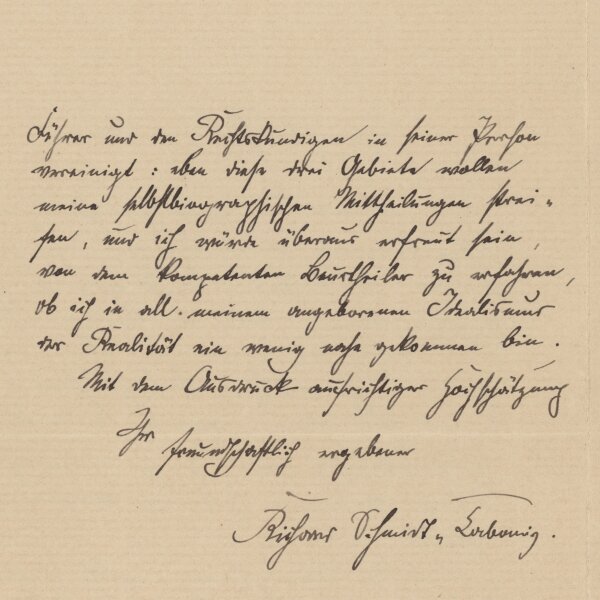 Führer und den Rechtskundigen in seiner Person
vereinigt: eben diese drei Gebiete wollen
meine selbstbiographischen Mittheilungen strei-
fen, und ich würde überaus erfreut sein,
von dem kompetenten Beurtheiler zu erfahren,
ob ich in all. meinem angeborenen Idealismus
der Realität ein wenig nahe gekommen bin.
Mit dem Ausdruck aufrichtiger Hochschätzung
Ihr
freundschaftlich ergebener
Richard Schmidt-Cabanis.